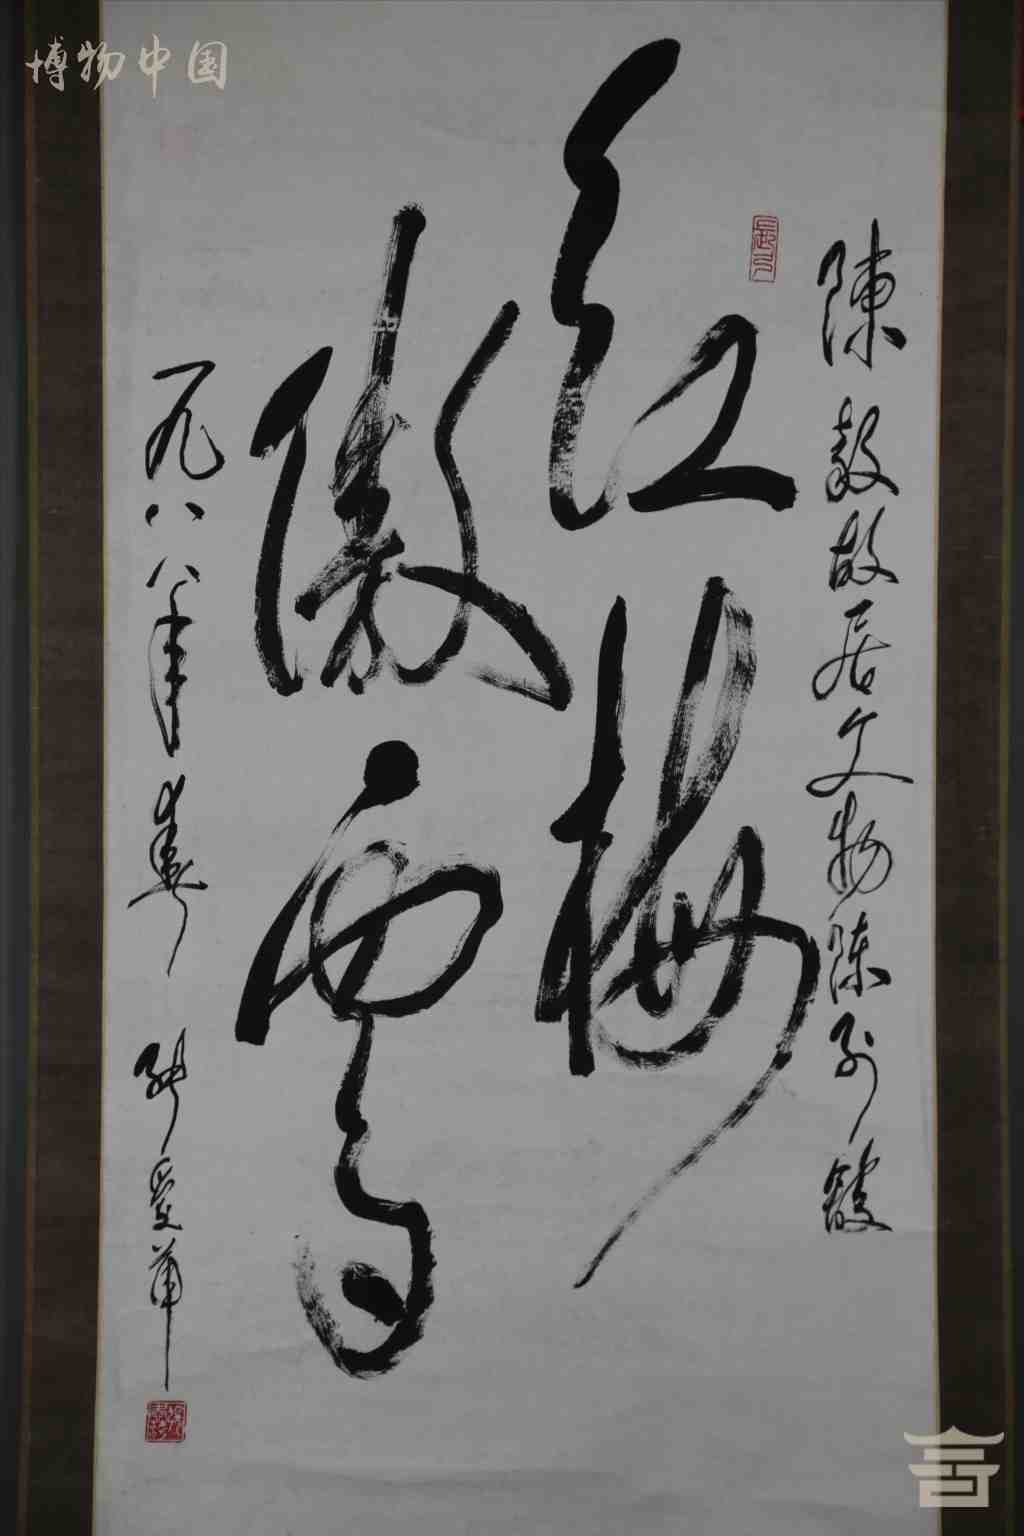 博物中国
陳毅故居文物陈列館
红梅
傲雪
一九八八年春 张爱萍